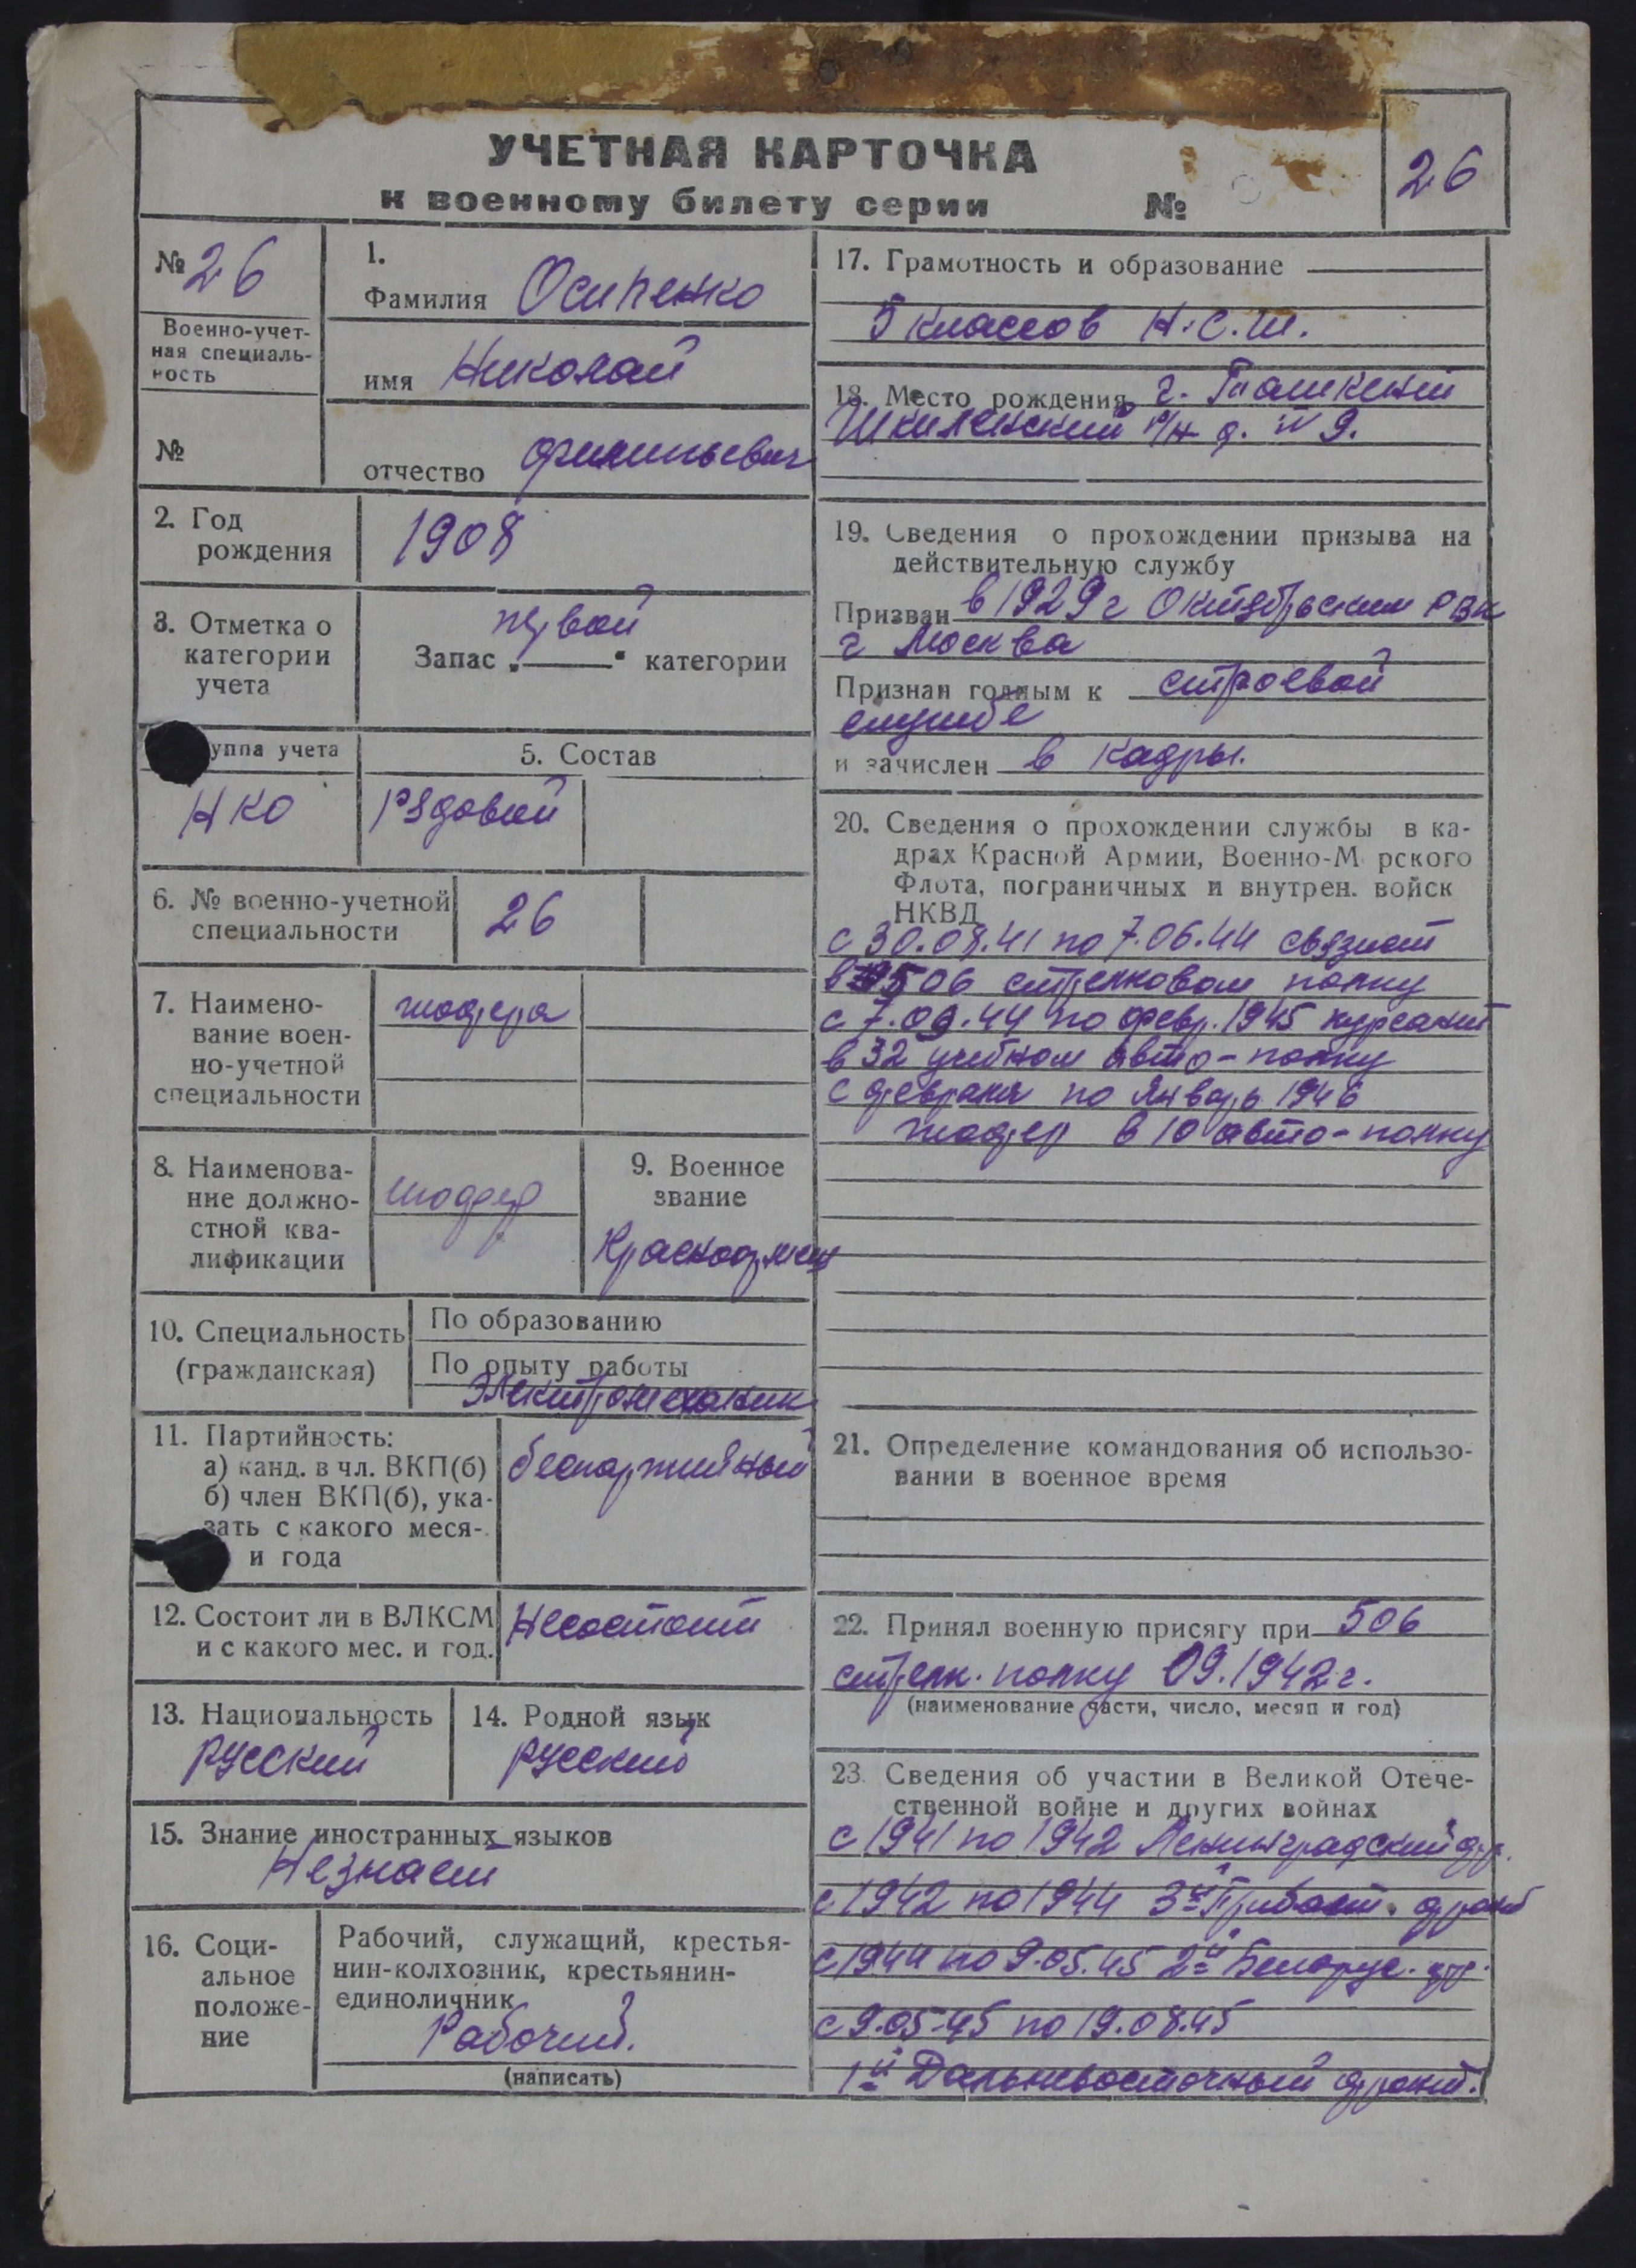 УЧЕТНАЯ КАРТОЧКА
к военному билету серии №
26
№ 26
Военно-учет-
ная специаль-
ность
№
1.
Фамилия Осипенко
имя Николай
отчество Филипьевич
2. Год
рождения
1908
3. Отметка о
категории
учета
первой
Запас „ “ категории
уппа учета
НКО
5. Состав
Рядовой
6. № военно-учетной
специальности
26
7. Наимено-
вание воен-
но-учетной
специальности
шофера
8. Наименова-
ние должно-
стной ква-
лификации
шоффер
9. Военное
звание
Красноармеец
10. Специальность
(гражданская)
По образованию
По опыту работы
Электромеханик
11. Партийность:
а) канд. в чл. ВКП(б)
б) член ВКП(б), ука-
зать с какого меся-
и года
беспартийный
12. Состоит ли в ВЛКСМ
и с какого мес. и год.
Несостоит
13. Национальность
русский
14. Родной язык
русский
15. Знание иностранных языков
Незнает
16. Соци-
альное
положе-
ние
Рабочий, служащий, крестья-
нин-колхозник, крестьянин-
единоличник
Рабочий.
(написать)
17. Грамотность и образование
5 классов Н.С.Ш.
18. Место рождения г. Ташкент
р/н д. 9.
19. Сведения о прохождении призыва на
действительную службу
Призван в 1929 г Октябрьским РВК
г Москва
Признан годным к строевой
службе
и зачислен в кадры.
20. Сведения о прохождении службы в ка-
драх Красной Армии, Военно-М рского
Флота, пограничных и внутрен. войск
НКВД
с 30.08.41 по 7.06.44 связист
в 506 стрелковом полку
с 7.06.44 по февр. 1945 курсант
в 32 учебном авто-полку
с февраля по Январь 1946
шофер в 10 авто-полку
21. Определение командования об использо-
вании в военное время
22. Принял военную присягу при 506
стрелк. полку 09.1942 г.
(наименование части, число, месяц и год)
23. Сведения об участии в Великой Отече-
ственной войне и других войнах
с 1941 по 1942 Ленинградский фр.
с 1942 по 1944 3й Прибалт. фронт
с 1944 по 9.05.45 2й Белорус. фр.
с 9.05.45 по 19.08.45
1й Дальневосточный фронт.